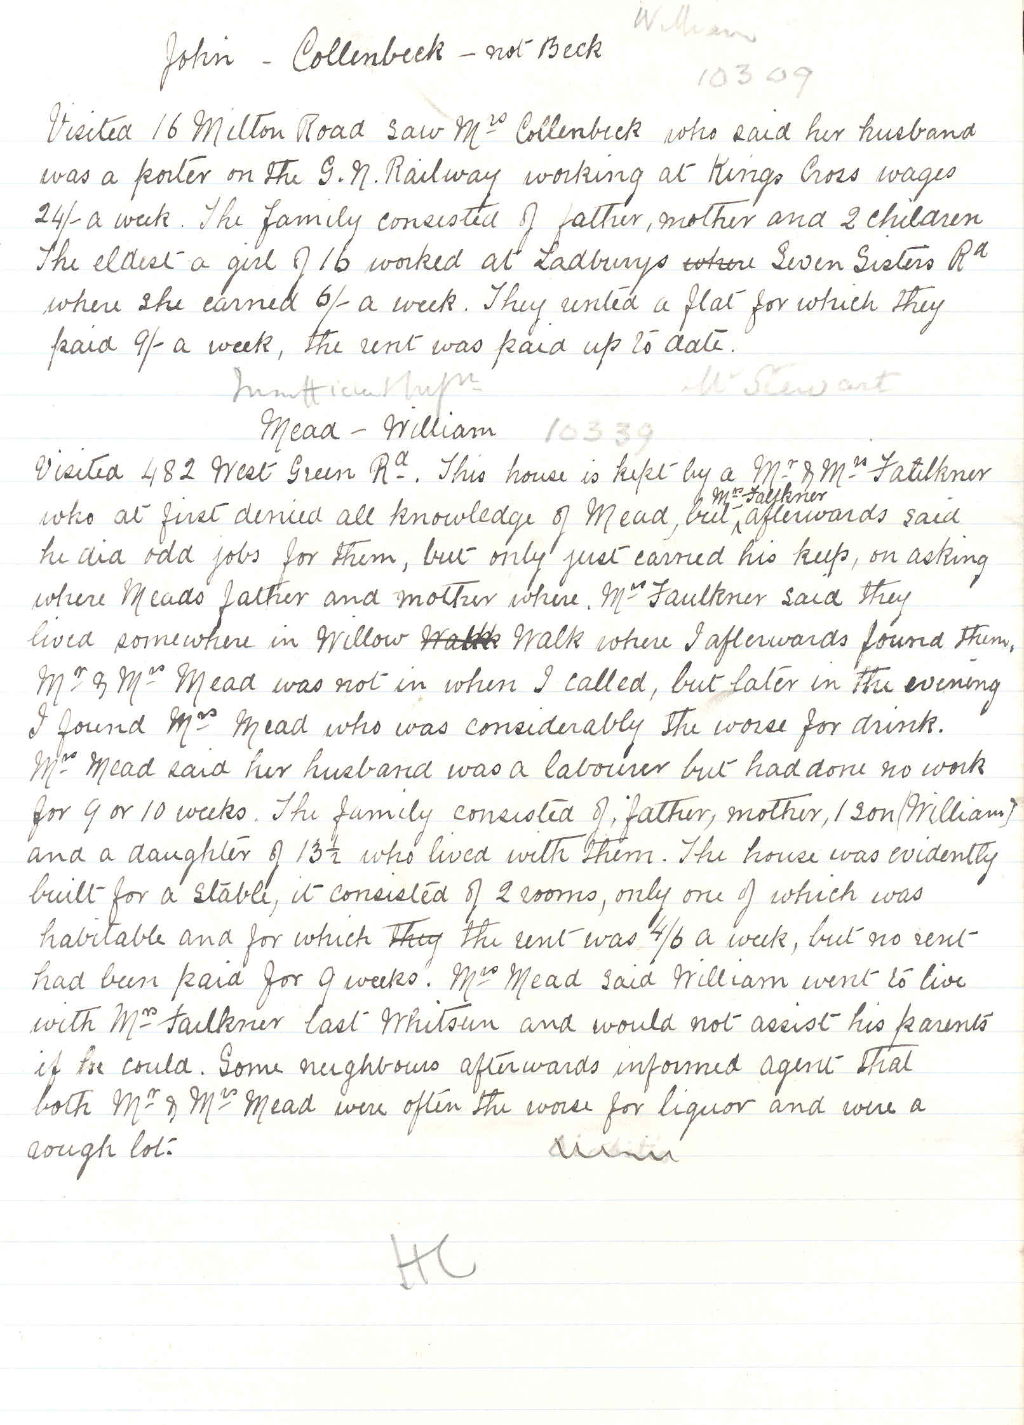 William
John - Collenbeck - not Beck
10309
Visited 16 Milton Road saw Mrs Collenbeck who said her husband
was a porter on the G.N. Railway working at Kings Cross wages
24/- a week. The family consisted of father, mother and 2 children
The eldest a girl of 16 worked at Ladburys where Seven Sisters Rd
where she earned 6/- a week. They rented a flat for which they
paid 9/- a week, the rent was paid up to date.
Insufficient Infn Mr Stewart
Mead - William 10339
Visited 482 West Green Rd. This house is kept by a Mr & Mrs Faulkner
who at first denied all knowledge of Mead, but Mrs Faulkner afterwards said
he did odd jobs for them, but only just earned his keep, on asking
where Meads father and mother where. Mrs Faulkner said they
lived somewhere in Willow Walk Walk where I afterwards found them.
Mr & Mrs Mead was not in when I called, but later in the evening
I found Mrs Mead who was considerably the worse for drink.
Mrs Mead said her husband was a labourer but had done no work
for 9 or 10 weeks. The family consisted of, father, mother, 1 son (William)
and a daughter of 13½ who lived with them. The house was evidently
built for a stable, it consisted of 2 rooms, only one of which was
habitable and for which they the rent was 4/6 a week, but no rent
had been paid for 9 weeks. Mrs Mead said William went to live
with Mrs Faulkner last Whitsun and would not assist his parents
if he could. Some neighbours afterwards informed agent that
both Mr & Mrs Mead were often the worse for liquor and were a
rough lot.
HC